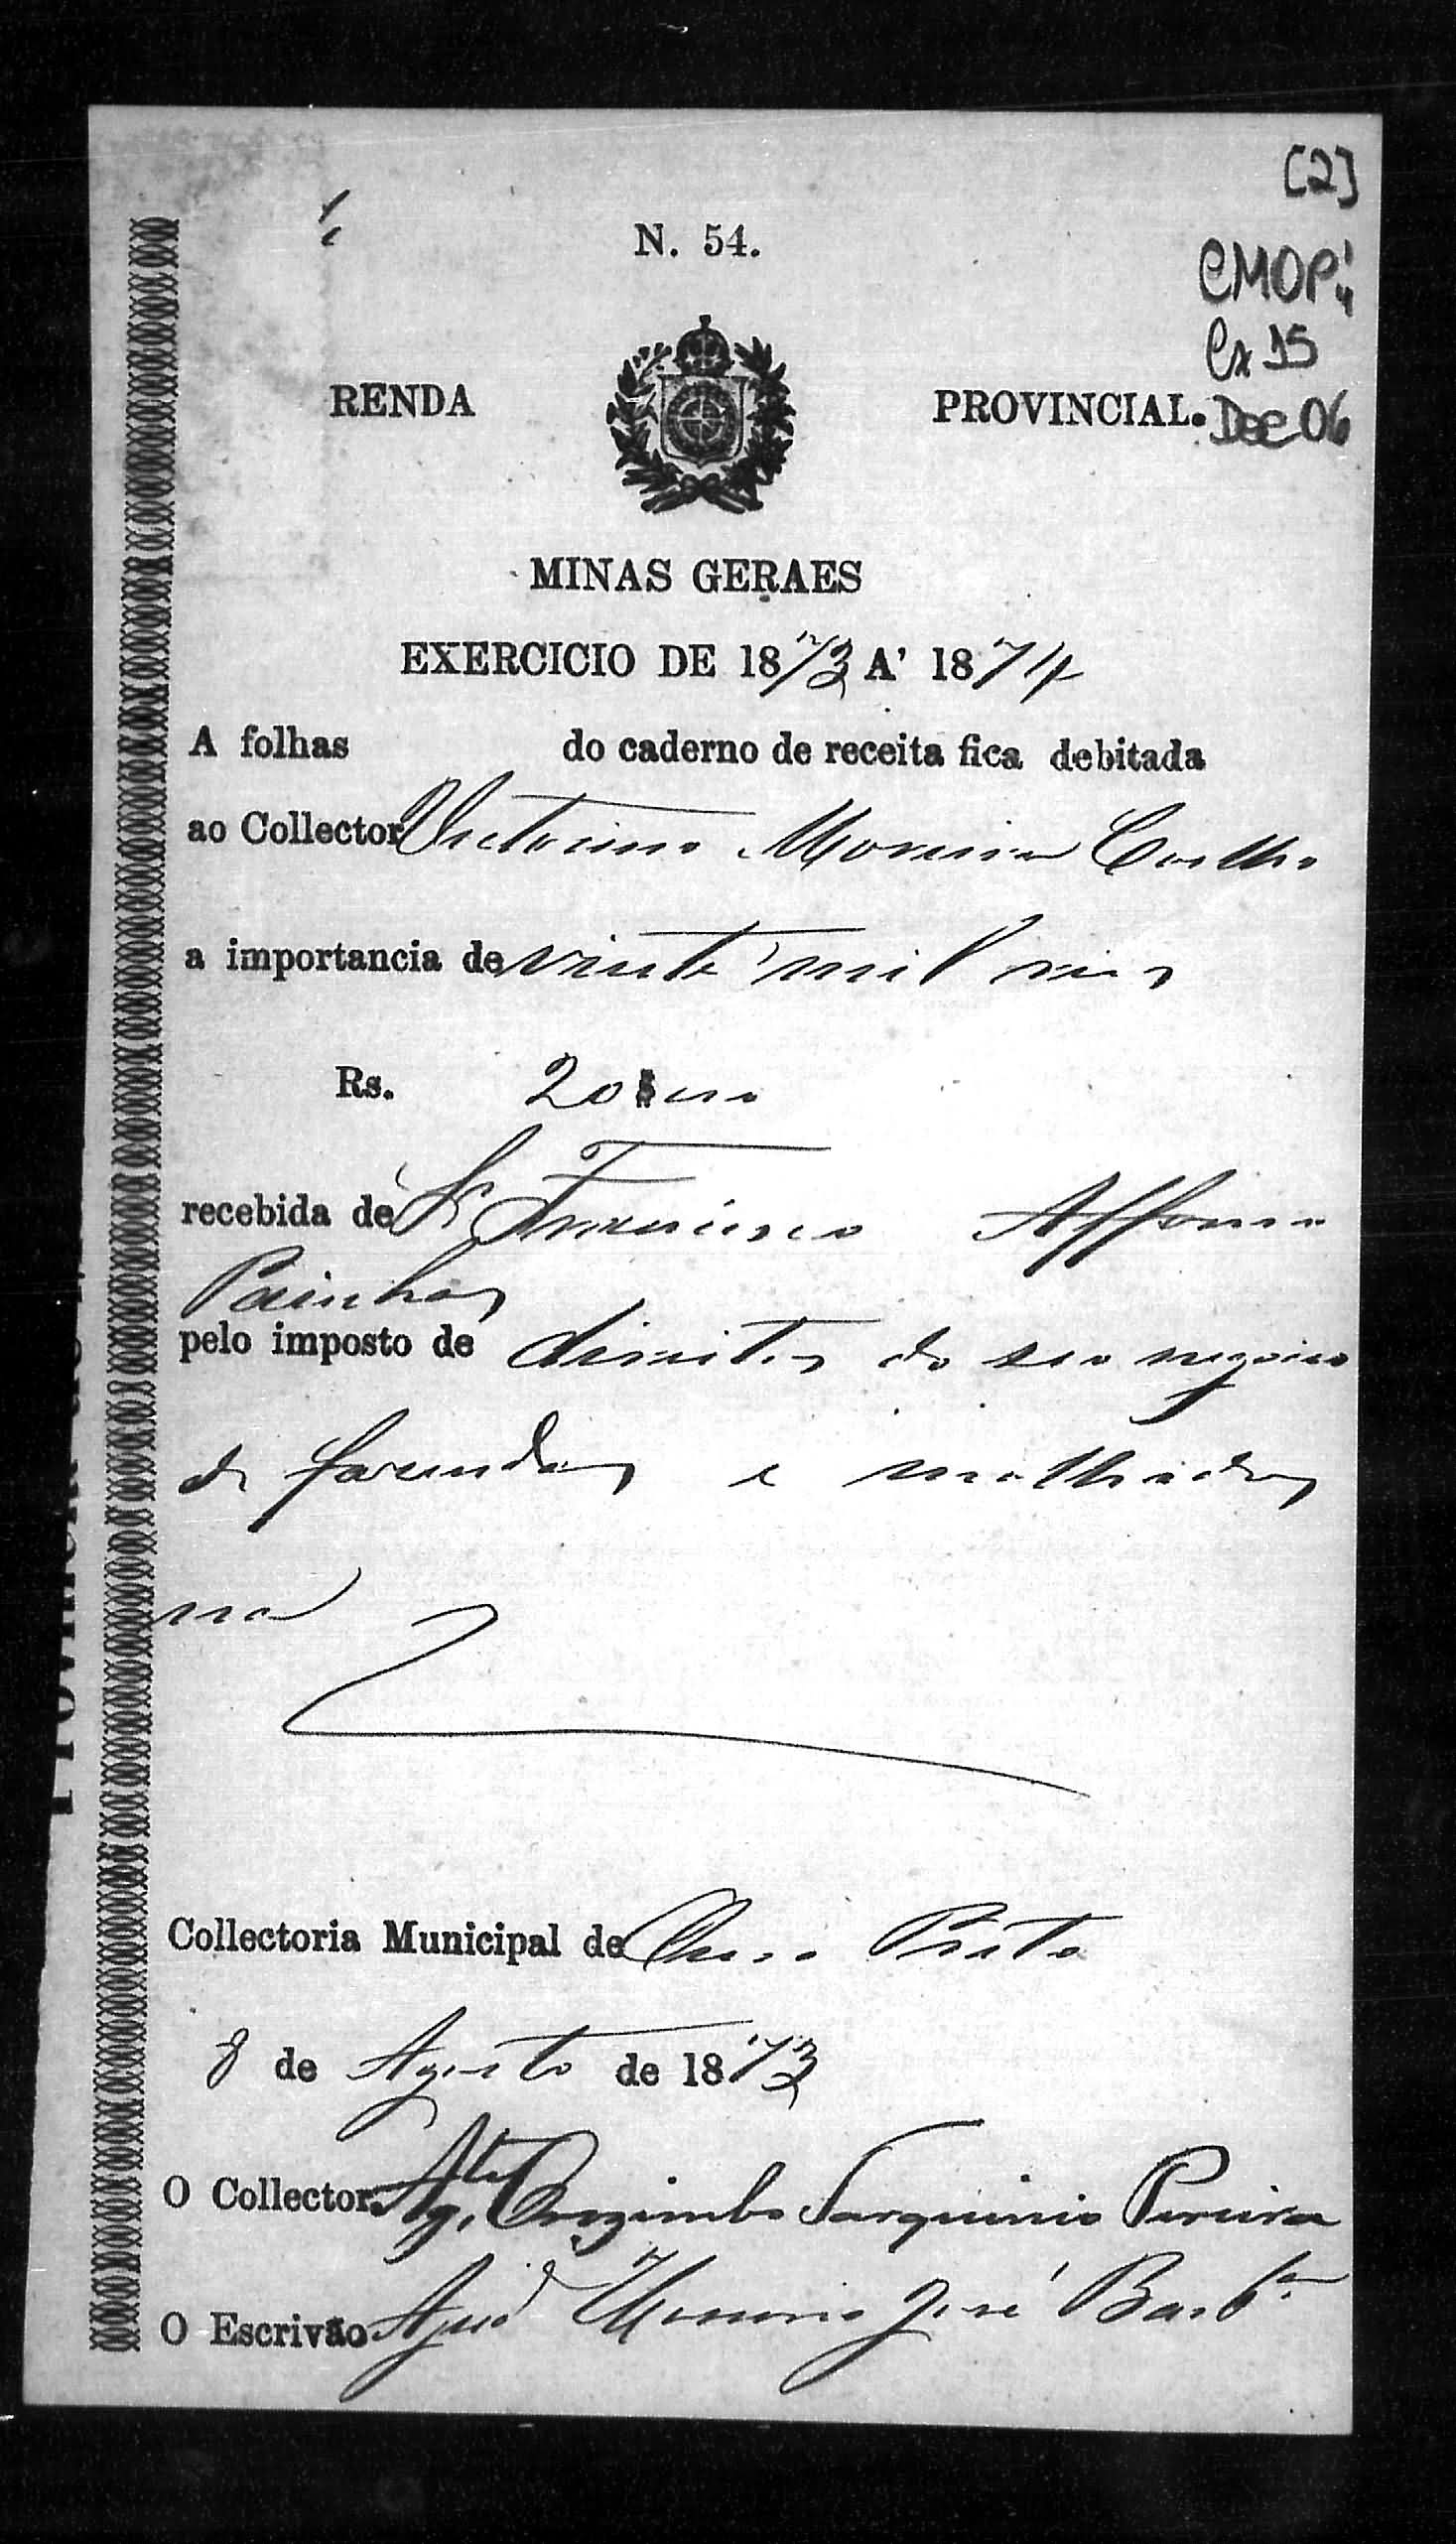 [2]
N. 54.
CMOP
Cx 15
RENDA PROVINCIAL. Doc 06
MINAS GERAES
EXERCICIO DE 1873 A' 1874
A folhas do caderno de receita fica debitada
ao Collector Victorino Moreira Coelho
a importancia de vinte mil reis
Rs. 20$000
recebida de Sr Francisco Affonso
Painhas
pelo imposto de direitos do seo negocio
de fazendas e molhados
na
Collectoria Municipal de Ouro Preto
8 de Agosto de 1873
O Collector. Agte Orozimbo Tarquinio Pereira
O Escrivão Ajud José Barbª